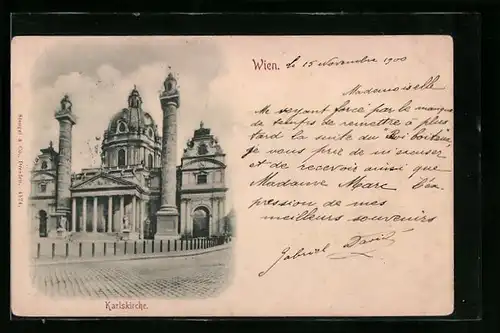 Wien.
le 15 Novembre 1900
Mademoiselle
Me voyant forcé par le manque
de temps de remettre à plus
tard la suite du "Roi boiteux"
je vous prie de m'excuser
et de recevoir ainsi que
Madame Marc l'ex-
pression de mes
meilleurs souvenirs
Gabriel David
Karlskirche.
Stengel & Co., Dresden.